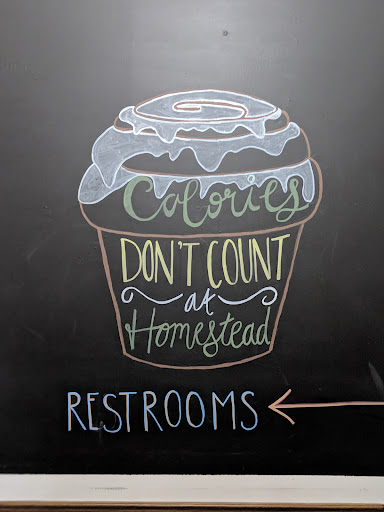 Calories
DON'T COUNT
at
Homestead
RESTROOMS